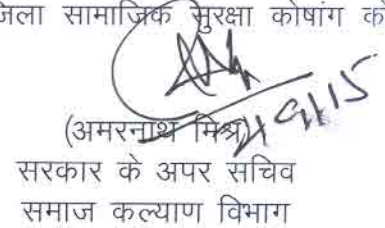 जिला सामाजिक सुरक्षा कोषांग को
(अमरनाथ मिश्र)
सरकार के अपर सचिव
समाज कल्याण विभाग